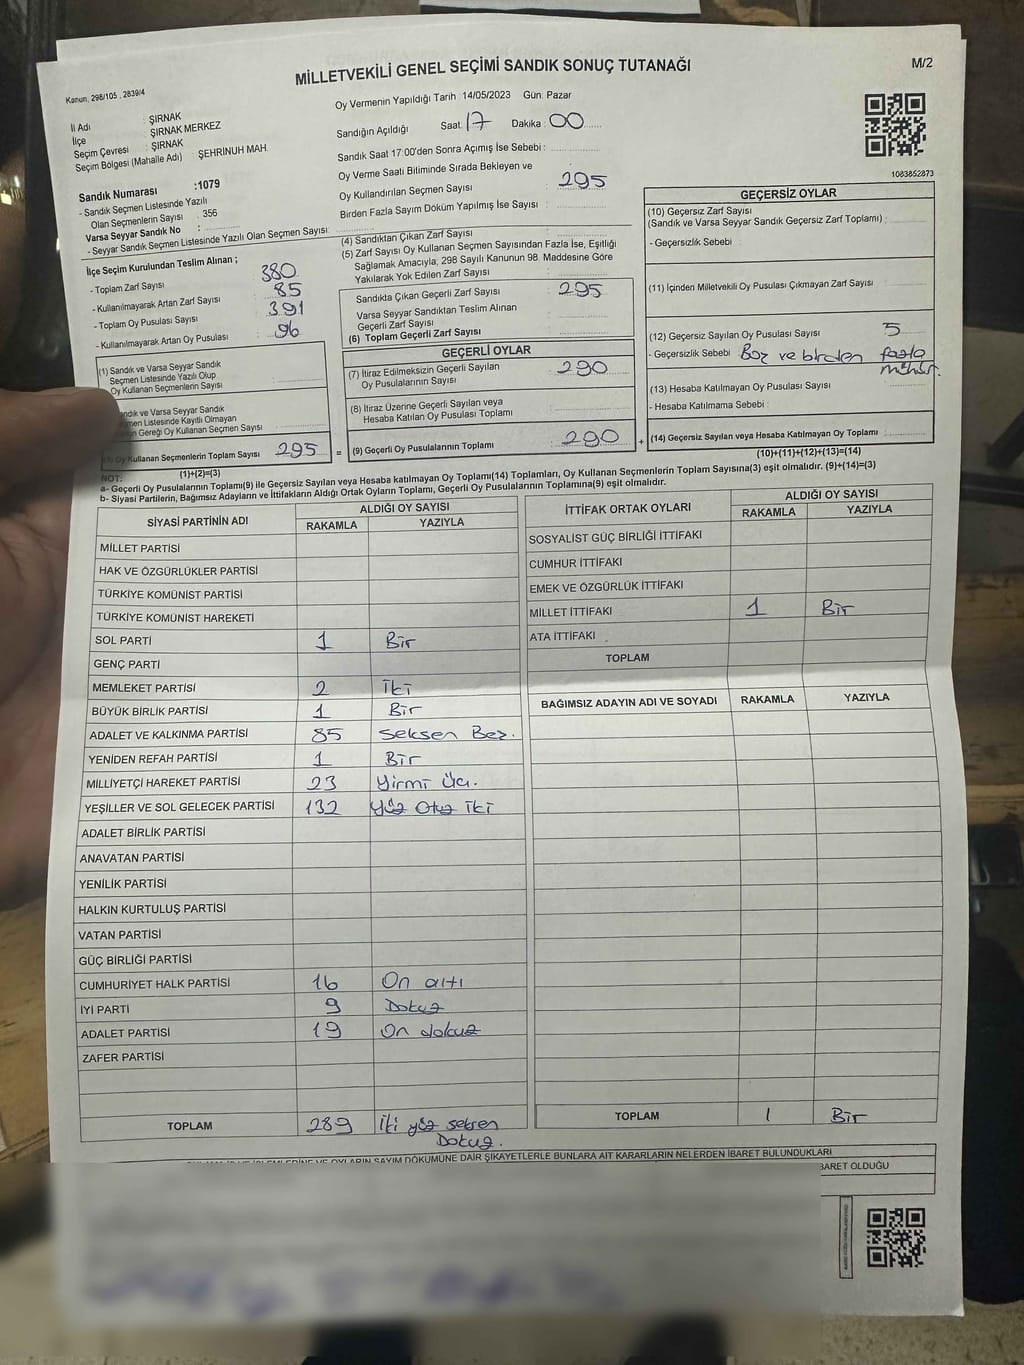 MİLLETVEKİLİ GENEL SEÇİMİ SANDIK SONUÇ TUTANAĞI
M/2
Kanun, 298/105 , 2839/4
İl Adı : ŞIRNAK
İlçe : ŞIRNAK MERKEZ
Seçim Çevresi : ŞIRNAK
Seçim Bölgesi (Mahalle Adı) : ŞEHRİNUH MAH.
Sandık Numarası :1079
- Sandık Seçmen Listesinde Yazılı
Olan Seçmenlerin Sayısı : 356
Varsa Seyyar Sandık No :
- Seyyar Sandık Seçmen Listesinde Yazılı Olan Seçmen Sayısı:
İlçe Seçim Kurulundan Teslim Alınan ;
- Toplam Zarf Sayısı : 380
- Kullanılmayarak Artan Zarf Sayısı : 85
- Toplam Oy Pusulası Sayısı : 391
- Kullanılmayarak Artan Oy Pusulası : 96
(1) Sandık ve Varsa Seyyar Sandık
Seçmen Listesinde Yazılı Olup
Oy Kullanan Seçmenlerin Sayısı :
ve Varsa Seyyar Sandık
Listesinde Kayıtlı Olmayan
Gereği Oy Kullanan Seçmen Sayısı :
Oy Kullanan Seçmenlerin Toplam Sayısı : 295
(1)+(2)=(3)
Oy Vermenin Yapıldığı Tarih :14/05/2023 Gün: Pazar
Sandığın Açıldığı Saat: 17 Dakika : 00
Sandık Saat 17:00'den Sonra Açımış İse Sebebi :
Oy Verme Saati Bitiminde Sırada Bekleyen ve
Oy Kullandırılan Seçmen Sayısı : 295
Birden Fazla Sayım Döküm Yapılmış İse Sayısı :
(4) Sandıktan Çıkan Zarf Sayısı :
(5) Zarf Sayısı Oy Kullanan Seçmen Sayısından Fazla İse, Eşitliği
Sağlamak Amacıyla; 298 Sayılı Kanunun 98. Maddesine Göre
Yakılarak Yok Edilen Zarf Sayısı :
Sandıkta Çıkan Geçerli Zarf Sayısı : 295
Varsa Seyyar Sandıktan Teslim Alınan
Geçerli Zarf Sayısı :
(6) Toplam Geçerli Zarf Sayısı :
GEÇERLİ OYLAR
(7) İtiraz Edilmeksizin Geçerli Sayılan
Oy Pusulalarının Sayısı : 290
(8) İtiraz Üzerine Geçerli Sayılan veya
Hesaba Katılan Oy Pusulası Toplamı :
= (9) Geçerli Oy Pusulalarının Toplamı : 290 +
1083852873
GEÇERSİZ OYLAR
(10) Geçersiz Zarf Sayısı
(Sandık ve Varsa Seyyar Sandık Geçersiz Zarf Toplamı) :
- Geçersizlik Sebebi :
(11) İçinden Milletvekili Oy Pusulası Çıkmayan Zarf Sayısı :
(12) Geçersiz Sayılan Oy Pusulası Sayısı : 5
- Geçersizlik Sebebi : Boş ve birden fazla
mühür.
(13) Hesaba Katılmayan Oy Pusulası Sayısı :
- Hesaba Katılmama Sebebi :
(14) Geçersiz Sayılan veya Hesaba Katılmayan Oy Toplamı :
(10)+(11)+(12)+(13)=(14)
NOT:
a- Geçerli Oy Pusulalarının Toplamı(9) ile Geçersiz Sayılan veya Hesaba katılmayan Oy Toplamı(14) Toplamları, Oy Kullanan Seçmenlerin Toplam Sayısına(3) eşit olmalıdır. (9)+(14)=(3)
b- Siyasi Partilerin, Bağımsız Adayların ve İttifakların Aldığı Ortak Oyların Toplamı, Geçerli Oy Pusulalarının Toplamına(9) eşit olmalıdır.
SİYASİ PARTİNİN ADI ALDIĞI OY SAYISI
RAKAMLA YAZIYLA
MİLLET PARTİSİ
HAK VE ÖZGÜRLÜKLER PARTİSİ
TÜRKİYE KOMÜNİST PARTİSİ
TÜRKİYE KOMÜNİST HAREKETİ
SOL PARTİ 1 Bir
GENÇ PARTİ
MEMLEKET PARTİSİ 2 İki
BÜYÜK BİRLİK PARTİSİ 1 Bir
ADALET VE KALKINMA PARTİSİ 85 Seksen Beş.
YENİDEN REFAH PARTİSİ 1 Bir
MİLLİYETÇİ HAREKET PARTİSİ 23 Yirmi Üç.
YEŞİLLER VE SOL GELECEK PARTİSİ 132 Yüz Otuz iki
ADALET BİRLİK PARTİSİ
ANAVATAN PARTİSİ
YENİLİK PARTİSİ
HALKIN KURTULUŞ PARTİSİ
VATAN PARTİSİ
GÜÇ BİRLİĞİ PARTİSİ
CUMHURİYET HALK PARTİSİ 16 On altı
İYİ PARTİ 9 Dokuz
ADALET PARTİSİ 19 On dokuz
ZAFER PARTİSİ
TOPLAM 289 İki yüz seksen
Dokuz.
İTTİFAK ORTAK OYLARI ALDIĞI OY SAYISI
RAKAMLA YAZIYLA
SOSYALİST GÜÇ BİRLİĞİ İTTİFAKI
CUMHUR İTTİFAKI
EMEK VE ÖZGÜRLÜK İTTİFAKI
MİLLET İTTİFAKI 1 Bir
ATA İTTİFAKI
TOPLAM
BAĞIMSIZ ADAYIN ADI VE SOYADI RAKAMLA YAZIYLA
TOPLAM 1 Bir
OYLARIN SAYIM DÖKÜMÜNE DAİR ŞİKAYETLERLE BUNLARA AİT KARARLARIN NELERDEN İBARET BULUNDUKLARI
İBARET OLDUĞU